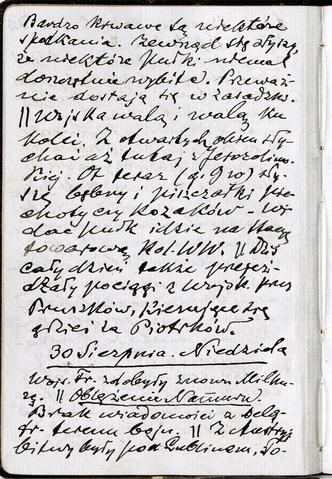 Bardzo krwawe są niektóre
spotkania. Zewsząd się słyszy,
że niektóre pułki niemal
doszczętnie wybite. Przeważ-
nie dostają się w zasadzkę.
|| Wojska walą i walą ku
kolei. Z otwartych okien sły-
chać aż tutaj z Jerozolim-
skiej. Ot teraz (g. 9 ro) sły-
szę bębny i piszczałki pie-
choty czy Kozaków – wi-
dać pułk idzie na stację
towarową Kol. W.W. || Dziś
cały dzień także przejeż-
dżały pociągi z wojsk. przez
Pruszków, kierujące się
gdzieś za Piotrków.
30 Sierpnia. Niedziela
Wojs. Fr. zdobyły znowu Milhu-
zę. || Oblężenie Namuru.
Brak wiadomości z belg-
fr. terenu boju. || Z Austryą
bitwy były pod Lublinem, To-